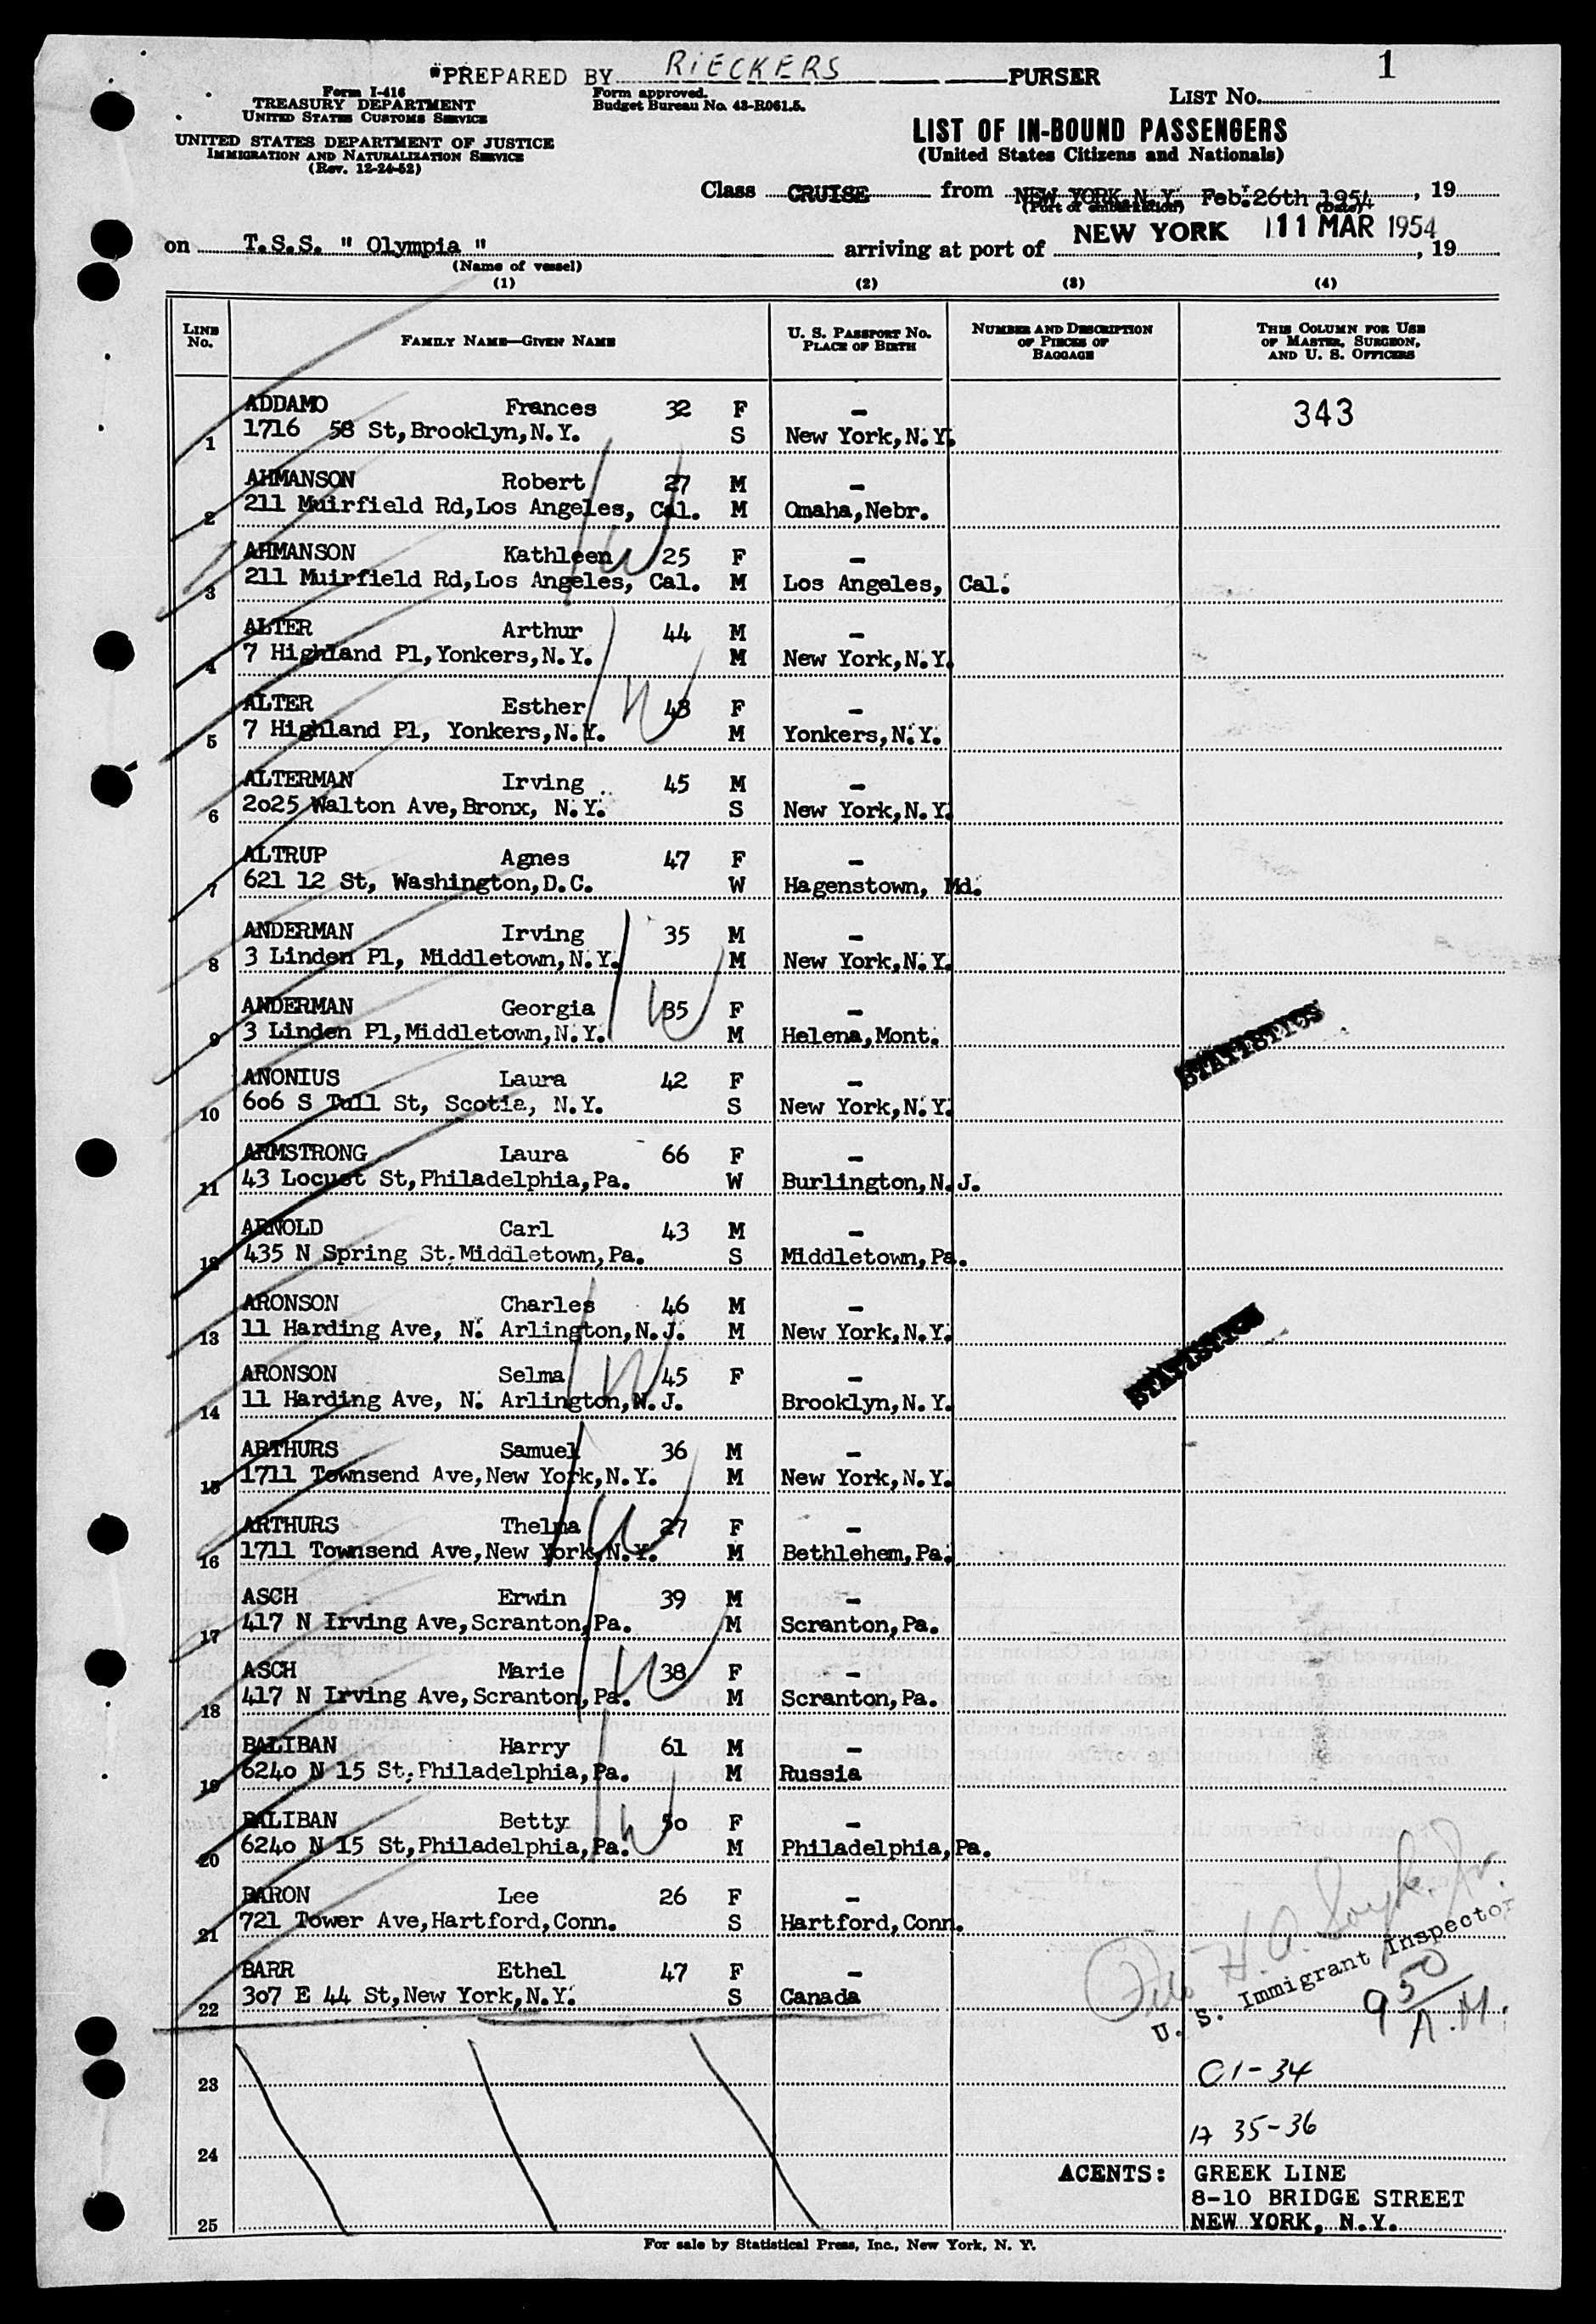 "PREPARED BY RIECKERS PURSER
1
Form I-416
TREASURY DEPARTMENT
UNITED STATES CUSTOMS SERVICE
UNITED STATES DEPARTMENT OF JUSTICE
IMMIGRATION AND NATURALIZATION SERVICE
(Rev. 12-24-52)
Form approved.
Budget Bureau No. 43-R061.5.
LIST No.
LIST OF IN-BOUND PASSENGERS
(United States Citizens and Nationals)
Class CRUISE from NEW YORK, N.Y. Feb. 26th 1954, 19
(Port of embarkation) (Date)
on T.S.S. " Olympia " arriving at port of NEW YORK 11 MAR 1954, 19
(Name of vessel)
(1) (2) (3) (4)
LINE No. FAMILY NAME—GIVEN NAME U. S. PASSPORT No. PLACE OF BIRTH NUMBER AND DESCRIPTION OF PIECES OF BAGGAGE THIS COLUMN FOR USE OF MASTER, SURGEON, AND U. S. OFFICERS
ADDAMO Frances 32 F - 343
1 1716 58 St, Brooklyn, N.Y. S New York, N.Y.
AHMANSON Robert 27 M -
2 211 Muirfield Rd, Los Angeles, Cal. M Omaha, Nebr.
AHMANSON Kathleen 25 F -
3 211 Muirfield Rd, Los Angeles, Cal. M Los Angeles, Cal.
ALTER Arthur 44 M -
4 7 Highland Pl, Yonkers, N.Y. M New York, N.Y.
ALTER Esther 43 F -
5 7 Highland Pl, Yonkers, N.Y. M Yonkers, N.Y.
ALTERMAN Irving 45 M -
6 2025 Walton Ave, Bronx, N.Y. S New York, N.Y.
ALTRUP Agnes 47 F -
7 621 12 St, Washington, D.C. W Hagenstown, Md.
ANDERMAN Irving 35 M -
8 3 Linden Pl, Middletown, N.Y. M New York, N.Y.
ANDERMAN Georgia 35 F -
9 3 Linden Pl, Middletown, N.Y. M Helena, Mont.
STATISTICS
ANONIUS Laura 42 F -
10 606 S Tull St, Scotia, N.Y. S New York, N.Y.
ARMSTRONG Laura 66 F -
11 43 Locust St, Philadelphia, Pa. W Burlington, N.J.
ARNOLD Carl 43 M -
12 435 N Spring St. Middletown, Pa. S Middletown, Pa.
ARONSON Charles 46 M -
13 11 Harding Ave, N. Arlington, N.J. M New York, N.Y.
STATISTICS
ARONSON Selma 45 F -
14 11 Harding Ave, N. Arlington, N.J. Brooklyn, N.Y.
ARTHURS Samuel 36 M -
15 1711 Townsend Ave, New York, N.Y. M New York, N.Y.
ARTHURS Thelma 27 F -
16 1711 Townsend Ave, New York, N.Y. M Bethlehem, Pa.
ASCH Erwin 39 M -
17 417 N Irving Ave, Scranton, Pa. M Scranton, Pa.
ASCH Marie 38 F -
18 417 N Irving Ave, Scranton, Pa. M Scranton, Pa.
BALIBAN Harry 61 M -
19 6240 N 15 St. Philadelphia, Pa. M Russia
BALIBAN Betty 50 F -
20 6240 N 15 St, Philadelphia, Pa. M Philadelphia, Pa.
BARON Lee 26 F -
21 721 Tower Ave, Hartford, Conn. S Hartford, Conn.
BARR Ethel 47 F -
22 307 E 44 St, New York, N.Y. S Canada
U. S. Immigrant Inspector
9 50 A.M.
23 C1-34
24 A 35-36
25
AGENTS: GREEK LINE
8-10 BRIDGE STREET
NEW YORK, N.Y.
For sale by Statistical Press, Inc., New York, N. Y.